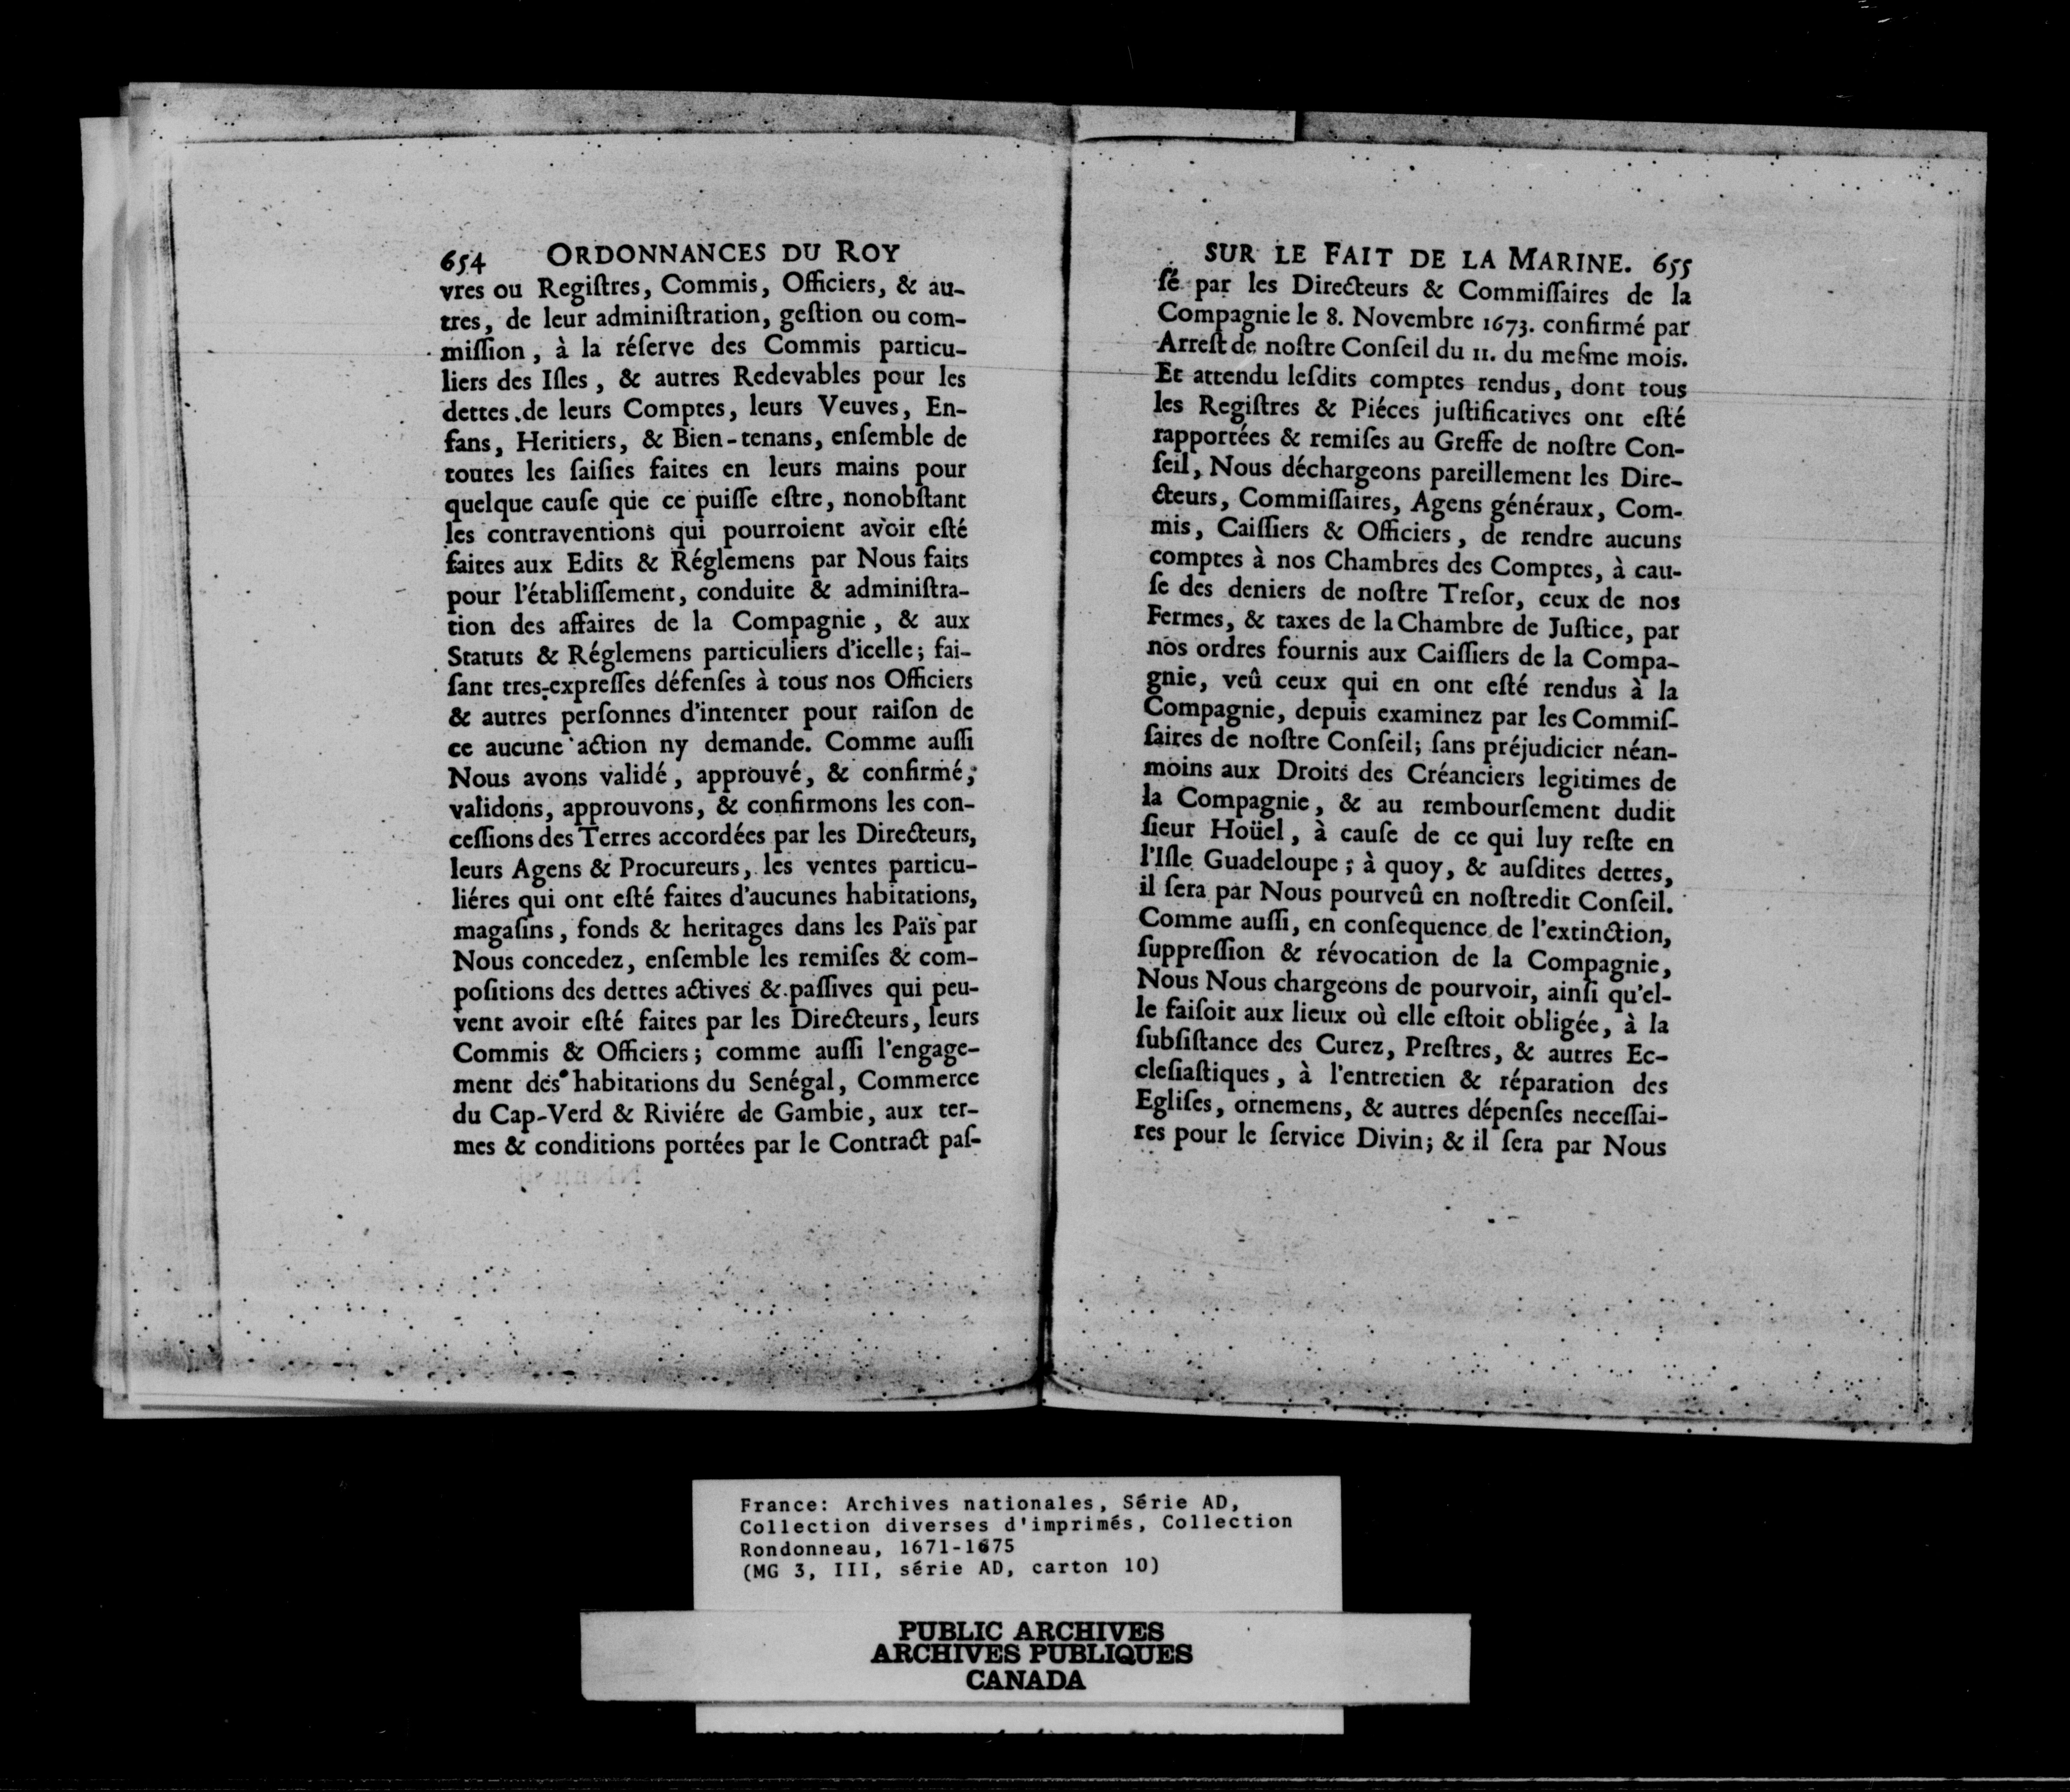 654 ORDONNANCES DU ROY
vres ou Regiſtres, Commis, Officiers, & au-
tres, de leur adminiſtration, geſtion ou com-
miſſion, à la réſerve des Commis particu-
liers des Iſles, & autres Redevables pour les
dettes de leurs Comptes, leurs Veuves, En-
fans, Heritiers, & Bien-tenans, enſemble de
toutes les ſaiſies faites en leurs mains pour
quelque cauſe que ce puiſſe eſtre, nonobſtant
les contraventions qui pourroient avoir eſté
faites aux Edits & Réglemens par Nous faits
pour l'établiſſement, conduite & adminiſtra-
tion des affaires de la Compagnie, & aux
Statuts & Réglemens particuliers d'icelle; fai-
ſant tres-expreſſes défenſes à tous nos Officiers
& autres perſonnes d'intenter pour raiſon de
ce aucune action ny demande. Comme auſſi
Nous avons validé, approuvé, & confirmé,
validons, approuvons, & confirmons les con-
ceſſions des Terres accordées par les Directeurs,
leurs Agens & Procureurs, les ventes particu-
liéres qui ont eſté faites d'aucunes habitations,
magaſins, fonds & heritages dans les Païs par
Nous concedez, enſemble les remiſes & com-
poſitions des dettes actives & paſſives qui peu-
vent avoir eſté faites par les Directeurs, leurs
Commis & Officiers; comme auſſi l'engage-
ment des habitations du Senégal, Commerce
du Cap-Verd & Riviére de Gambie, aux ter-
mes & conditions portées par le Contract paſ-
SUR LE FAIT DE LA MARINE. 655
ſé par les Directeurs & Commiſſaires de la
Compagnie le 8. Novembre 1673. confirmé par
Arreſt de noſtre Conſeil du 11. du meſme mois.
Et attendu leſdits comptes rendus, dont tous
les Regiſtres & Piéces juſtificatives ont eſté
rapportées & remiſes au Greffe de noſtre Con-
ſeil, Nous déchargeons pareillement les Dire-
cteurs, Commiſſaires, Agens généraux, Com-
mis, Caiſſiers & Officiers, de rendre aucuns
comptes à nos Chambres des Comptes, à cau-
ſe des deniers de noſtre Treſor, ceux de nos
Fermes, & taxes de la Chambre de Juſtice, par
nos ordres fournis aux Caiſſiers de la Compa-
gnie, veû ceux qui en ont eſté rendus à la
Compagnie, depuis examinez par les Commiſ-
ſaires de noſtre Conſeil; ſans préjudicier néan-
moins aux Droits des Créanciers legitimes de
la Compagnie, & au rembourſement dudit
ſieur Hoüel, à cauſe de ce qui luy reſte en
l'Iſle Guadeloupe; à quoy, & auſdites dettes,
il ſera par Nous pourveû en noſtredit Conſeil.
Comme auſſi, en conſequence de l'extinction,
ſuppreſſion & révocation de la Compagnie,
Nous Nous chargeons de pourvoir, ainſi qu'el-
le faiſoit aux lieux où elle eſtoit obligée, à la
ſubſiſtance des Curez, Preſtres, & autres Ec-
cleſiaſtiques, à l'entretien & réparation des
Egliſes, ornemens, & autres dépenſes neceſſai-
res pour le ſervice Divin; & il ſera par Nous
France: Archives nationales, Série AD,
Collection diverses d'imprimés, Collection
Rondonneau, 1671-1675
(MG 3, III, série AD, carton 10)
PUBLIC ARCHIVES
ARCHIVES PUBLIQUES
CANADA